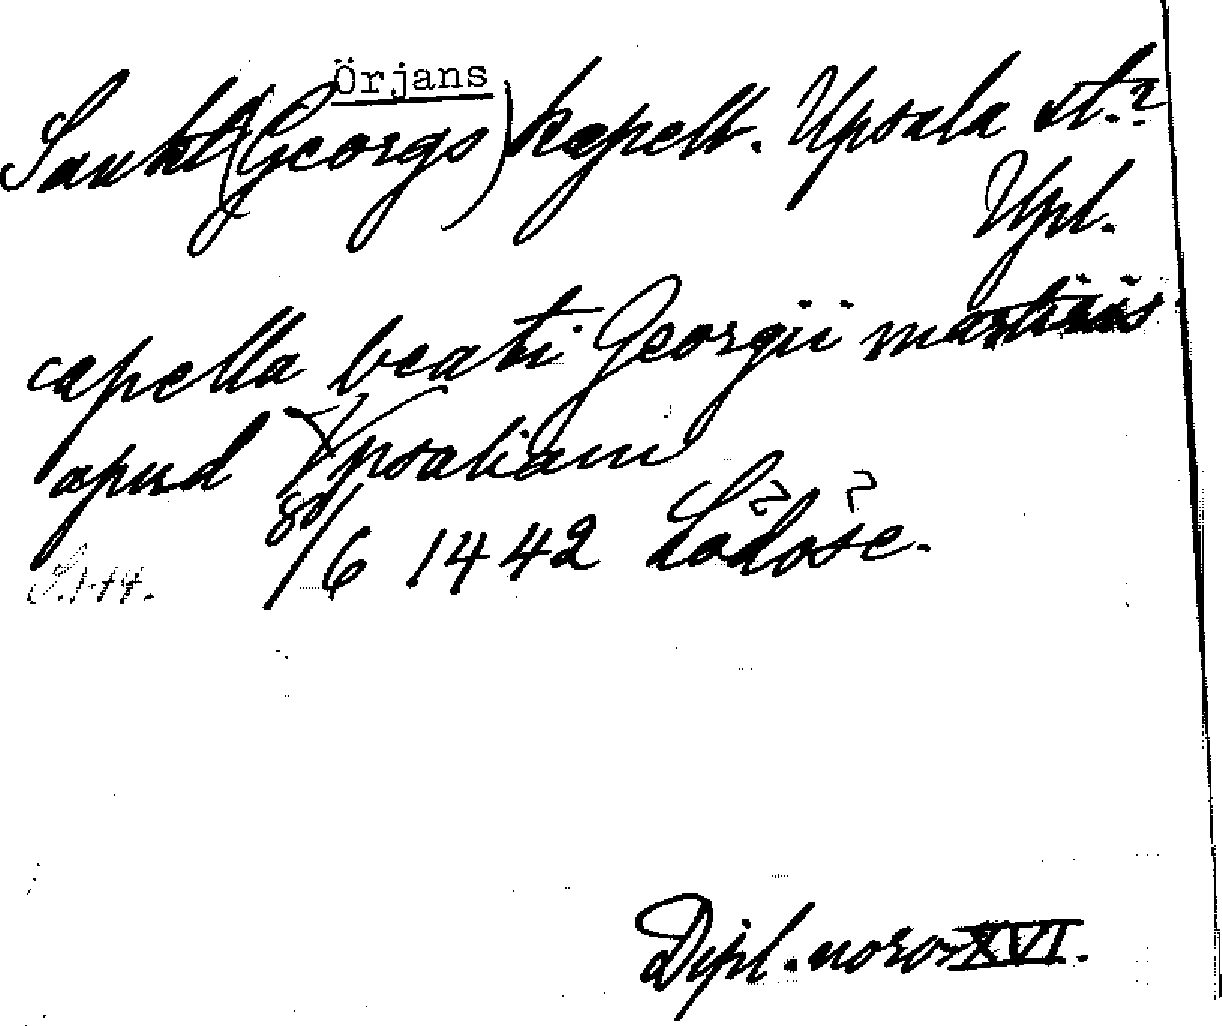 Örjans
Sankt (Georgs) kapell. Upsala st.?
Upl.
capella beati Georgii martiris
apud Ypsaliam
/6 1442 Lödöse.
S. 144.
Dipl. norv. XVI.